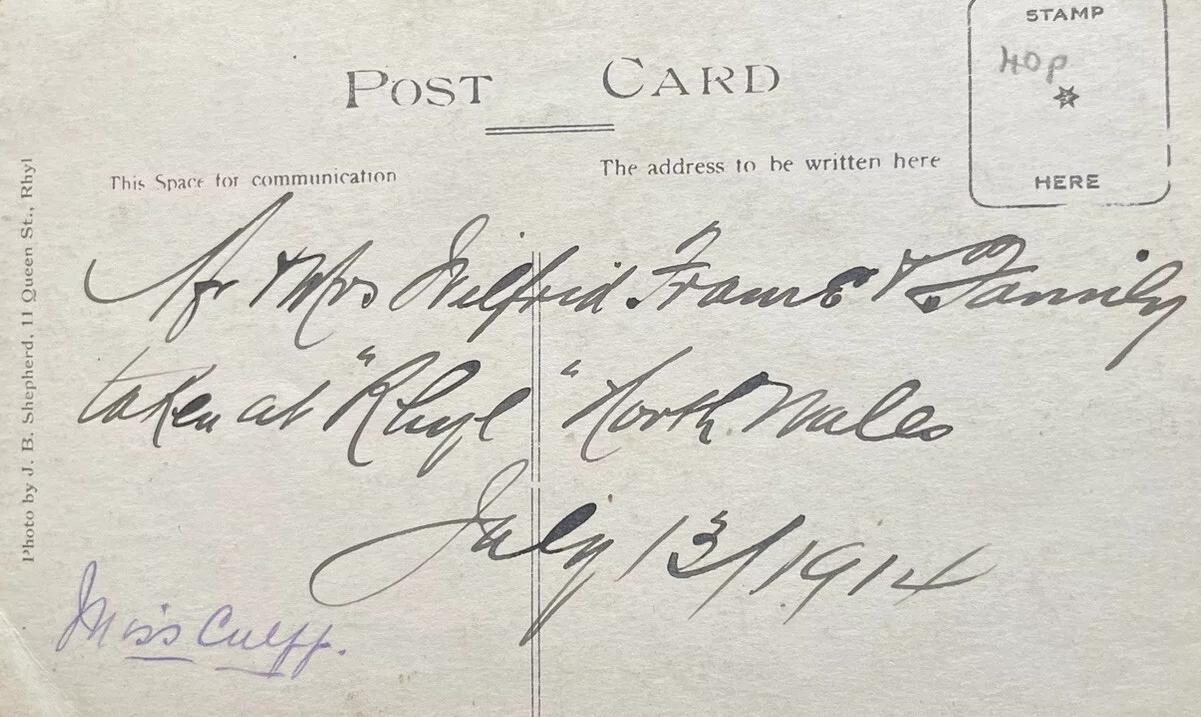 STAMP
40p
HERE
POST CARD
This Space for communication
The address to be written here
Mr & Mrs Wilfrid Frame & Family
taken at "Rhyl" North Wales
July 13/1914
Miss
Photo by J. B. Shepherd, 11 Queen St., Rhyl